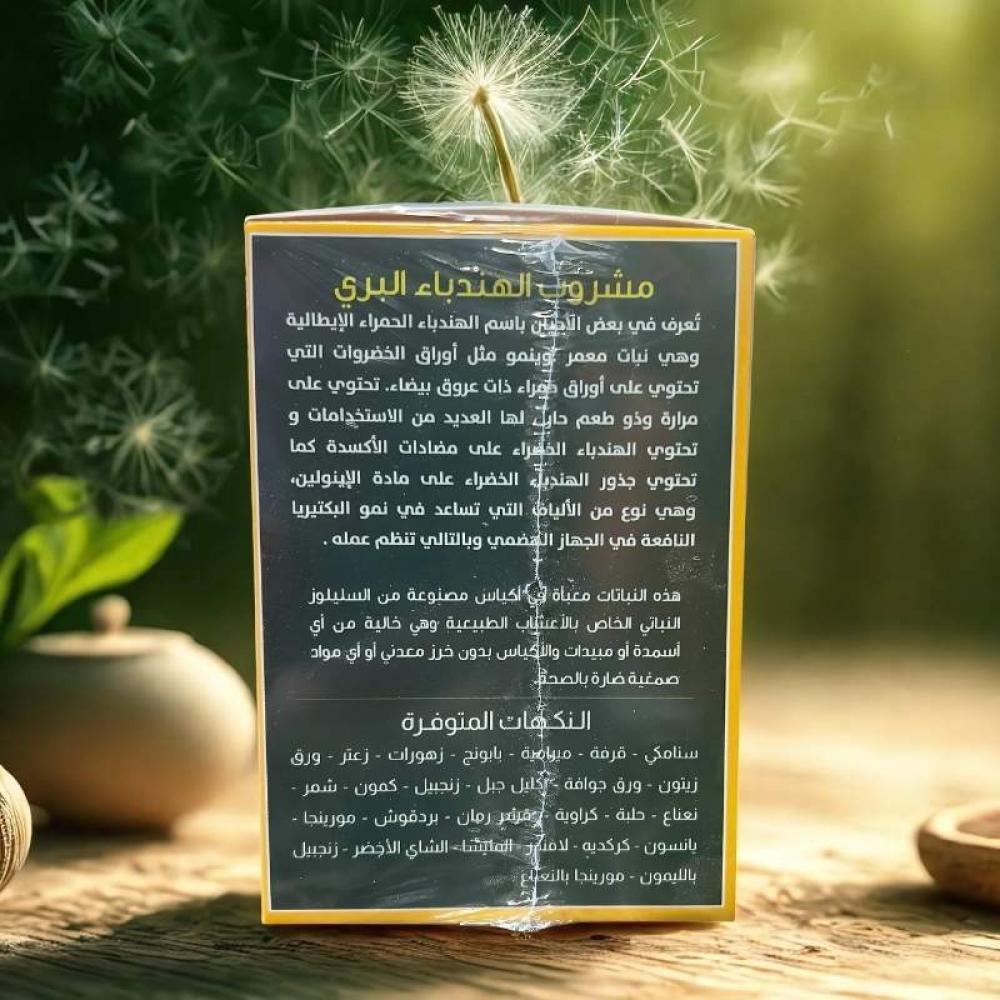 مشروب الهندباء البري
تُعرف في بعض الأحيان باسم الهندباء الحمراء الإيطالية
وهي نبات معمر وينمو مثل أوراق الخضروات التي
تحتوي على أوراق حمراء ذات عروق بيضاء. تحتوي على
مرارة وذو طعم حاد، لها العديد من الاستخدامات و
تحتوي الهندباء الخضراء على مضادات الأكسدة كما
تحتوي جذور الهندباء الخضراء على مادة الإينولين،
وهي نوع من الألياف التي تساعد في نمو البكتيريا
النافعة في الجهاز الهضمي وبالتالي تنظم عمله .
هذه النباتات معبأة في أكياس مصنوعة من السليلوز
النباتي الخاص بالأعشاب الطبيعية وهي خالية من أي
أسمدة أو مبيدات والأكياس بدون خرز معدني أو أي مواد
صمغية ضارة بالصحة
النكهات المتوفرة
سنامكي - قرفة - ميرامية - بابونج - زهورات - زعتر - ورق
زيتون - ورق جوافة - إكليل جبل - زنجبيل - كمون - شمر -
نعناع - حلبة - كراوية - قشر رمان - بردقوش - مورينجا -
يانسون - كركديه - المليسا - الشاي الأخضر - زنجبيل
بالليمون - مورينجا بالنعناع